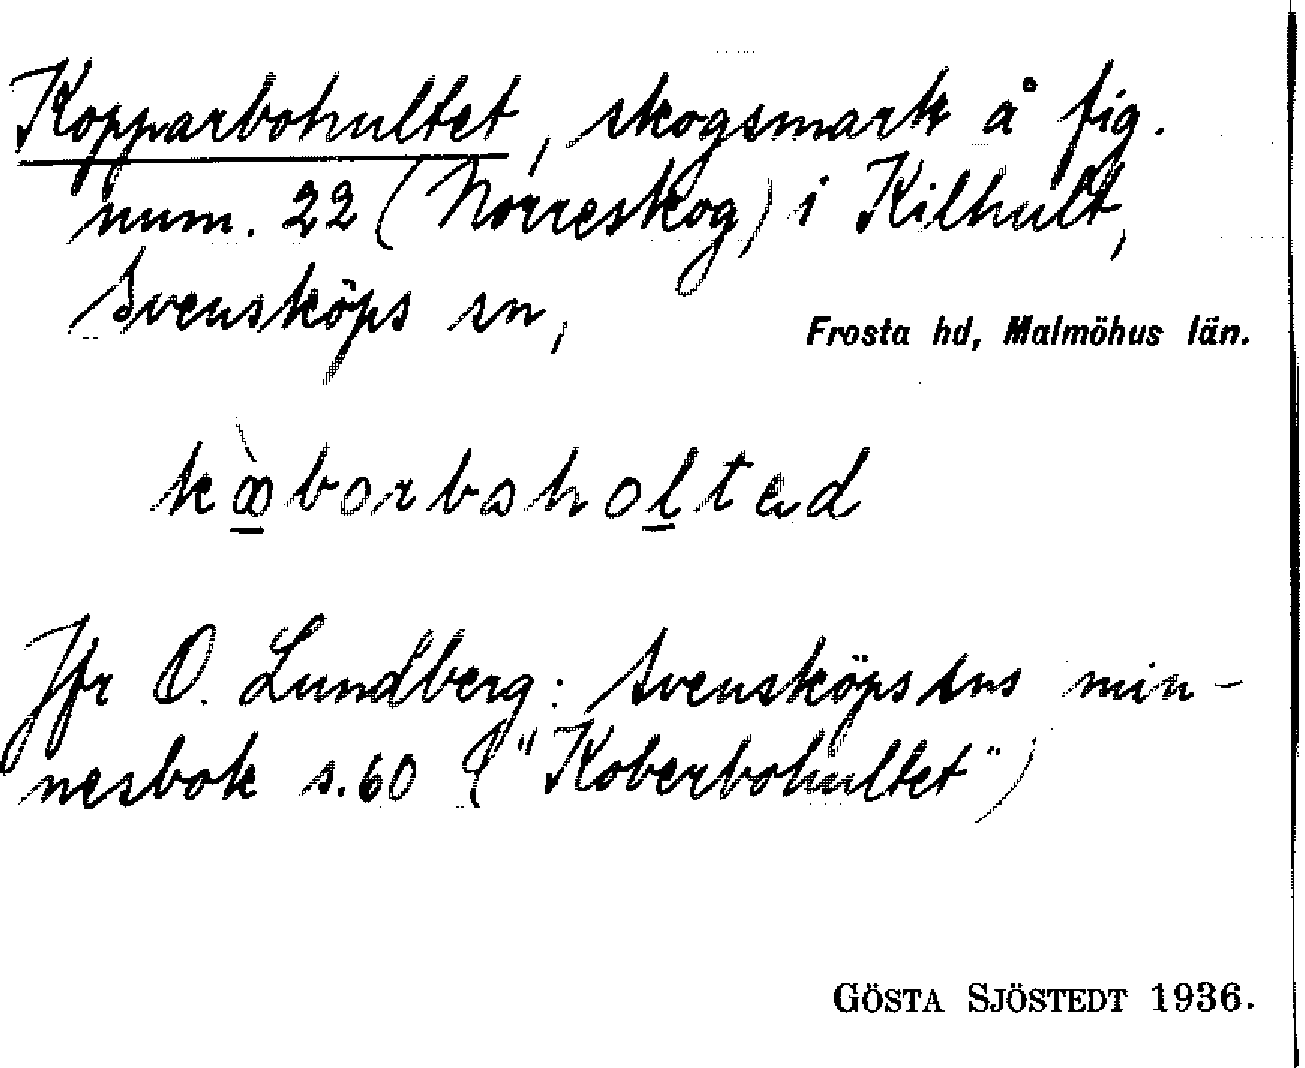 Kopparbohultet, skogsmark å fig.
num. 22 (Norreskog) i Kilhult,
Svensköps sn, Frosta hd, Malmöhus län.
Jfr O. Lundberg: Svensköps sns min-
nesbok s. 60 ("Koberbohultet")
GÖSTA SJÖSTEDT 1936.